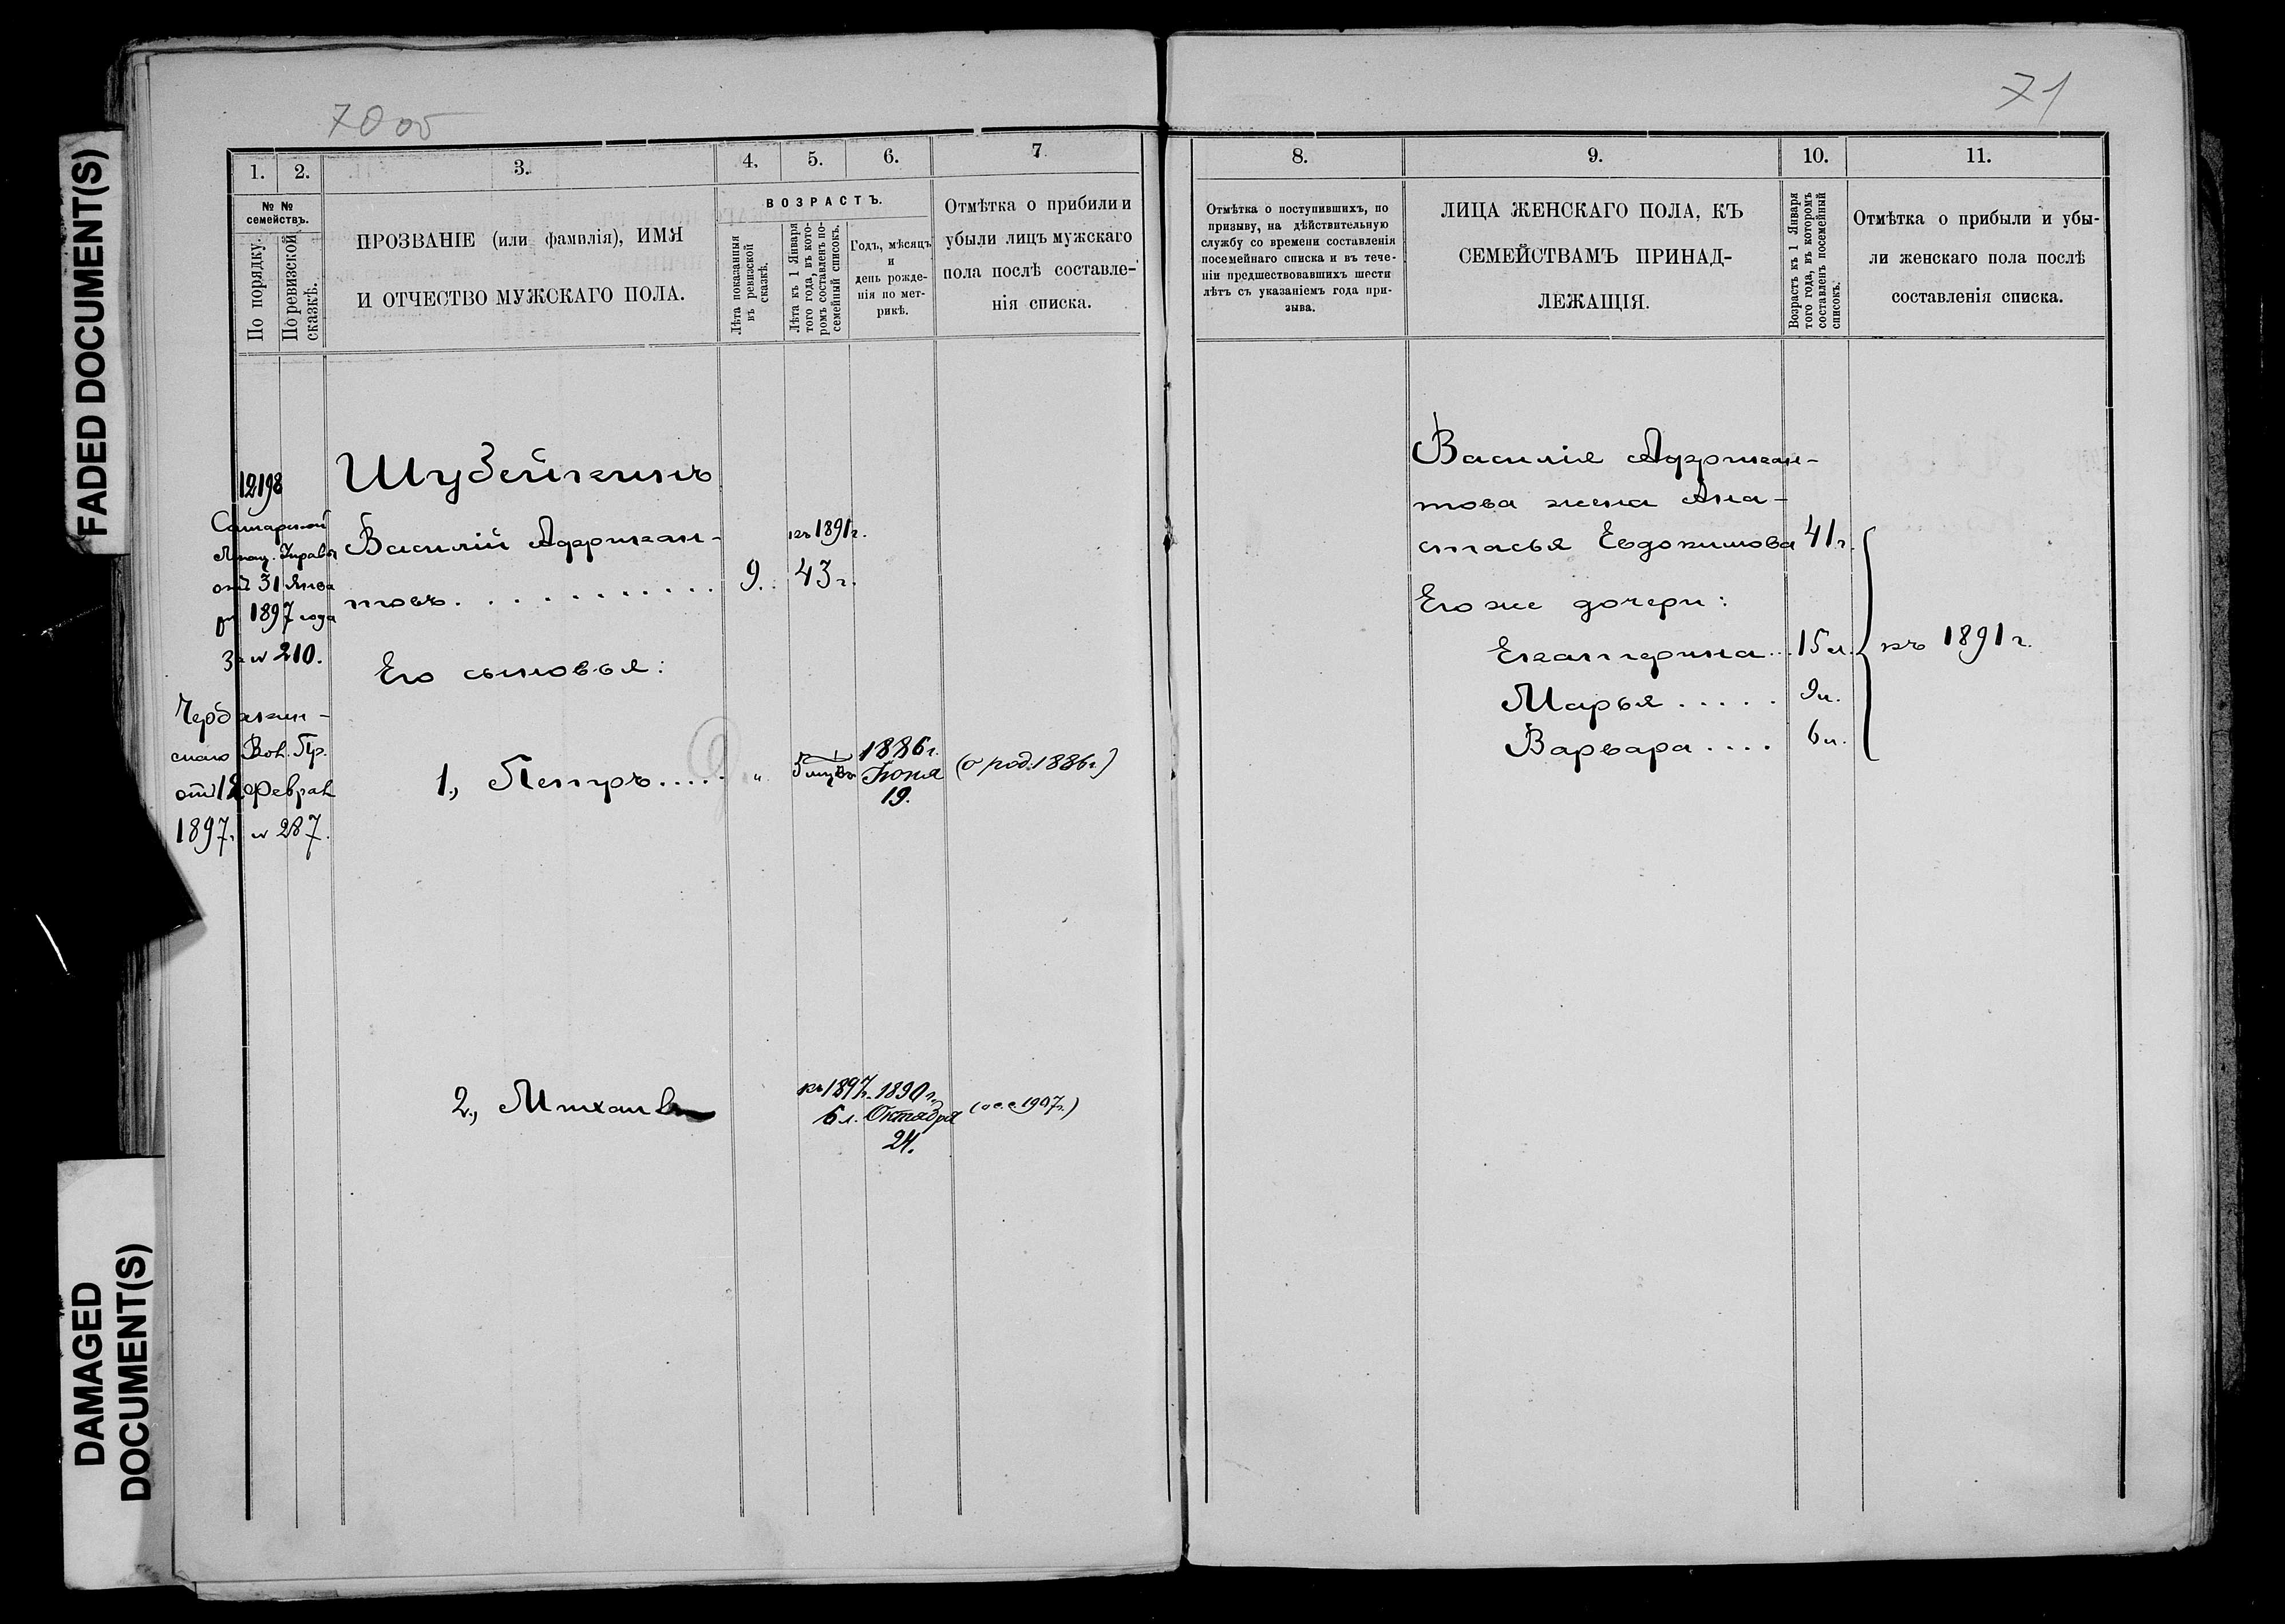 FADED DOCUMENT(S)
DAMAGED
DOCUMENT(S)
70 об
1.
2.
3.
4.
5.
6.
7
№ №
семействъ.
По порядку.
По ревизской
сказкѣ.
ПРОЗВАНІЕ (или фамилія), ИМЯ
И ОТЧЕСТВО МУЖСКАГО ПОЛА.
ВОЗРАСТЪ.
Лѣта показанныя
въ ревизской
сказкѣ.
Лѣта къ 1 Января
того года, въ кото-
ромъ составленъ по-
семейный списокъ.
Годъ, мѣсяцъ
и
день рожде-
нія по мет-
рикѣ.
Отмѣтка о прибыли и
убыли лицъ мужскаго
пола послѣ составле-
нія списка.
12198
Самарской
Управы
отъ 31 Янва
ря 1897 года
за № 210.
Чердаклин-
скаго Вол. Пр.
отъ 12 Феврал
1897 г. № 287.
Шубейкинъ
Василій Африкан-
товъ . . . . . . . . . . . .
9.
къ 1891 г.
43 г.
Его сыновья:
1., Петръ . . . . .
"
1886 г.
Іюня
19.
(о род. 1886 г.)
2., Михаилъ
къ 1897 г.
6 л.
1890 г.
Октября
24.
1907 г.)
71
8.
9.
10.
11.
Отмѣтка о поступившихъ, по
призыву, на дѣйствительную
службу со времени составленія
посемейнаго списка и въ тече-
ніи предшествовавшихъ шести
лѣтъ съ указаніемъ года при-
зыва.
ЛИЦА ЖЕНСКАГО ПОЛА, КЪ
СЕМЕЙСТВАМЪ ПРИНАД-
ЛЕЖАЩІЯ.
Возрастъ къ 1 Января
того года, въ которомъ
составленъ посемейный
списокъ.
Отмѣтка о прибыли и убы-
ли женскаго пола послѣ
составленія списка.
Василія Африкан-
това жена Ана-
стасья Евдокимова 41 г.
Его же дочери:
Екатерина . . . 15 л. къ 1891 г.
Марья . . . . . 9 л.
Варвара . . . . 6 л.